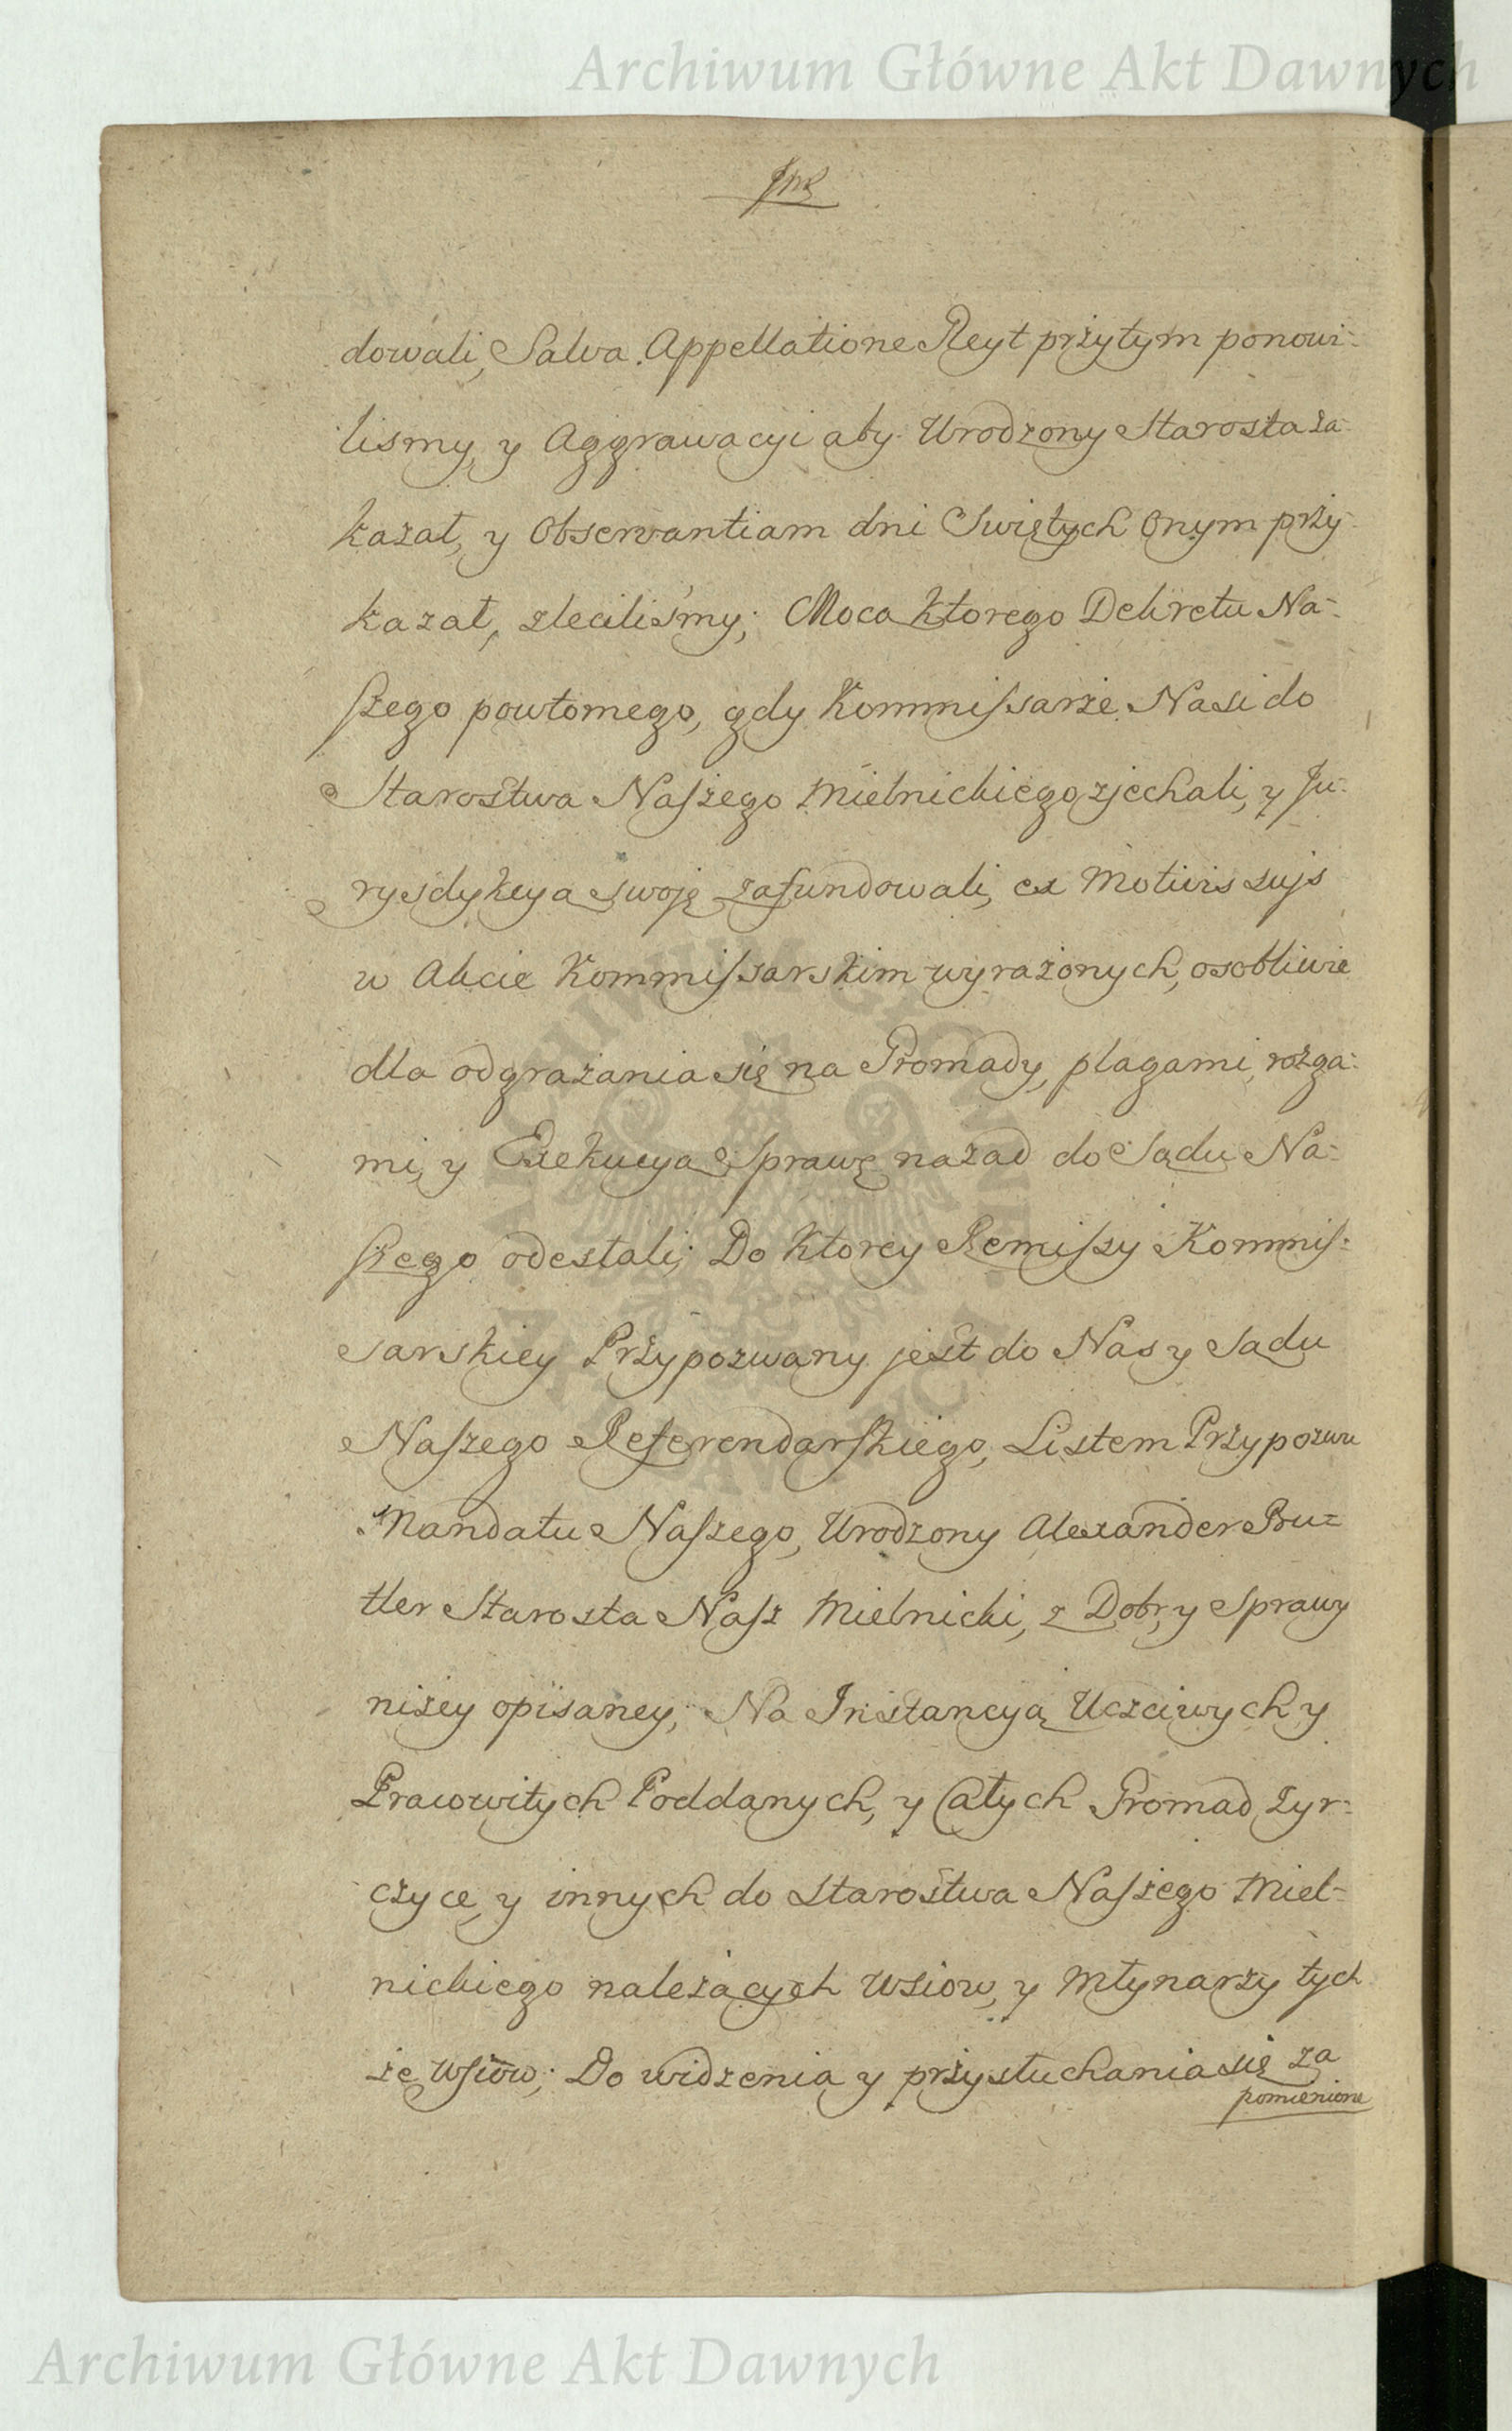 Archiwum Główne Akt Dawnych
dowali, Salva Appellatione Reyt przytym ponowi-
lismy, y Aggrawacyi aby Urodzony Starosta za-
kazał, y Observantiam dni Swiętych Onym przy-
kazał, zleciliśmy; Mocą ktorego Dekretu Na-
szego powtornego, gdy Kommissarze Nasi do
Starostwa Naszego Mielnickiego zjechali, y Ju-
rysdykcyą swoję zafundowali, ex Motivis sujs
w Akcie Kommissarskim wyrażonych, osobliwie
dla odgrażania się na Gromady, plagami, rozga-
mi, y Exekucyą Sprawę nazad do Sądu Na-
szego odesłali; Do ktorey Remissy Kommis-
sarskiey Przypozwany jest do Nas y Sadu
Naszego Referendarskiego, Listem Przypozwu
Mandatu Naszego, Urodzony Alexander Bu-
tler Starosta Nasz Mielnicki, z Dobr, y Sprawy
niżey opisaney; Na Instancyą Uczciwych y
Pracowitych Poddanych, y Całych Gromad Zyr-
czyce, y innych do Starostwa Naszego Miel-
nickiego należących Wsiow, y Młynarzy tych
że Wsiow; Do widzenia y przysłuchania się za
pomienione
ARCHIWUM GŁÓWNE AKT DAWNYCH
Archiwum Główne Akt Dawnych